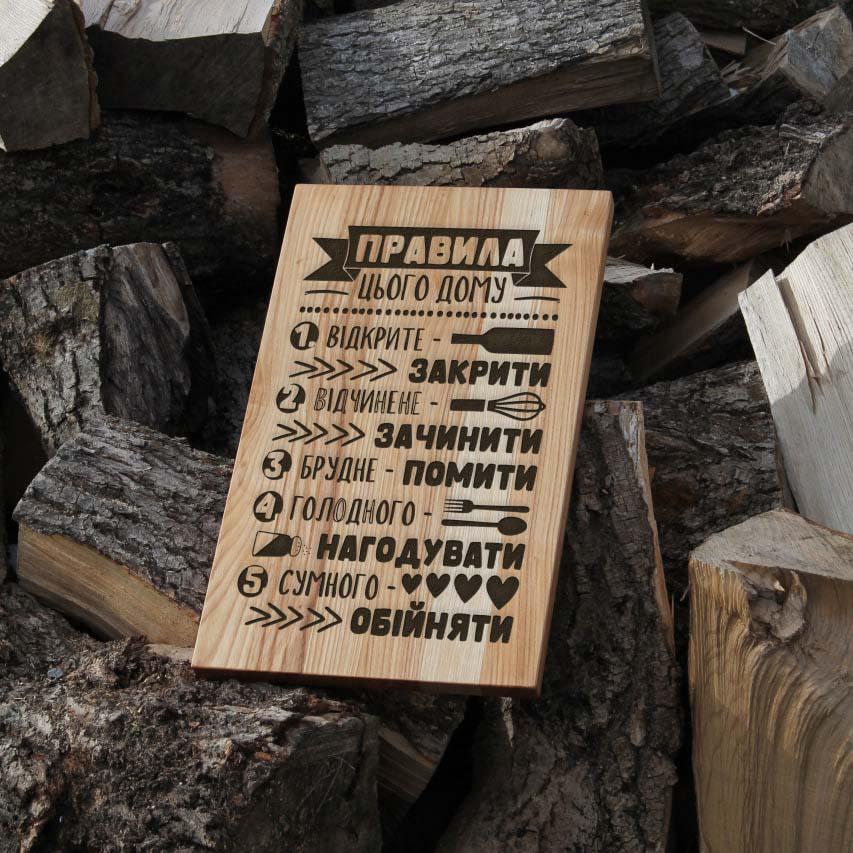 ПРАВИЛА
ЦЬОГО ДОМУ
1 ВІДКРИТЕ -
ЗАКРИТИ
2 ВІДЧИНЕНЕ -
ЗАЧИНИТИ
3 БРУДНЕ - ПОМИТИ
4 ГОЛОДНОГО -
НАГОДУВАТИ
5 СУМНОГО -
ОБІЙНЯТИ